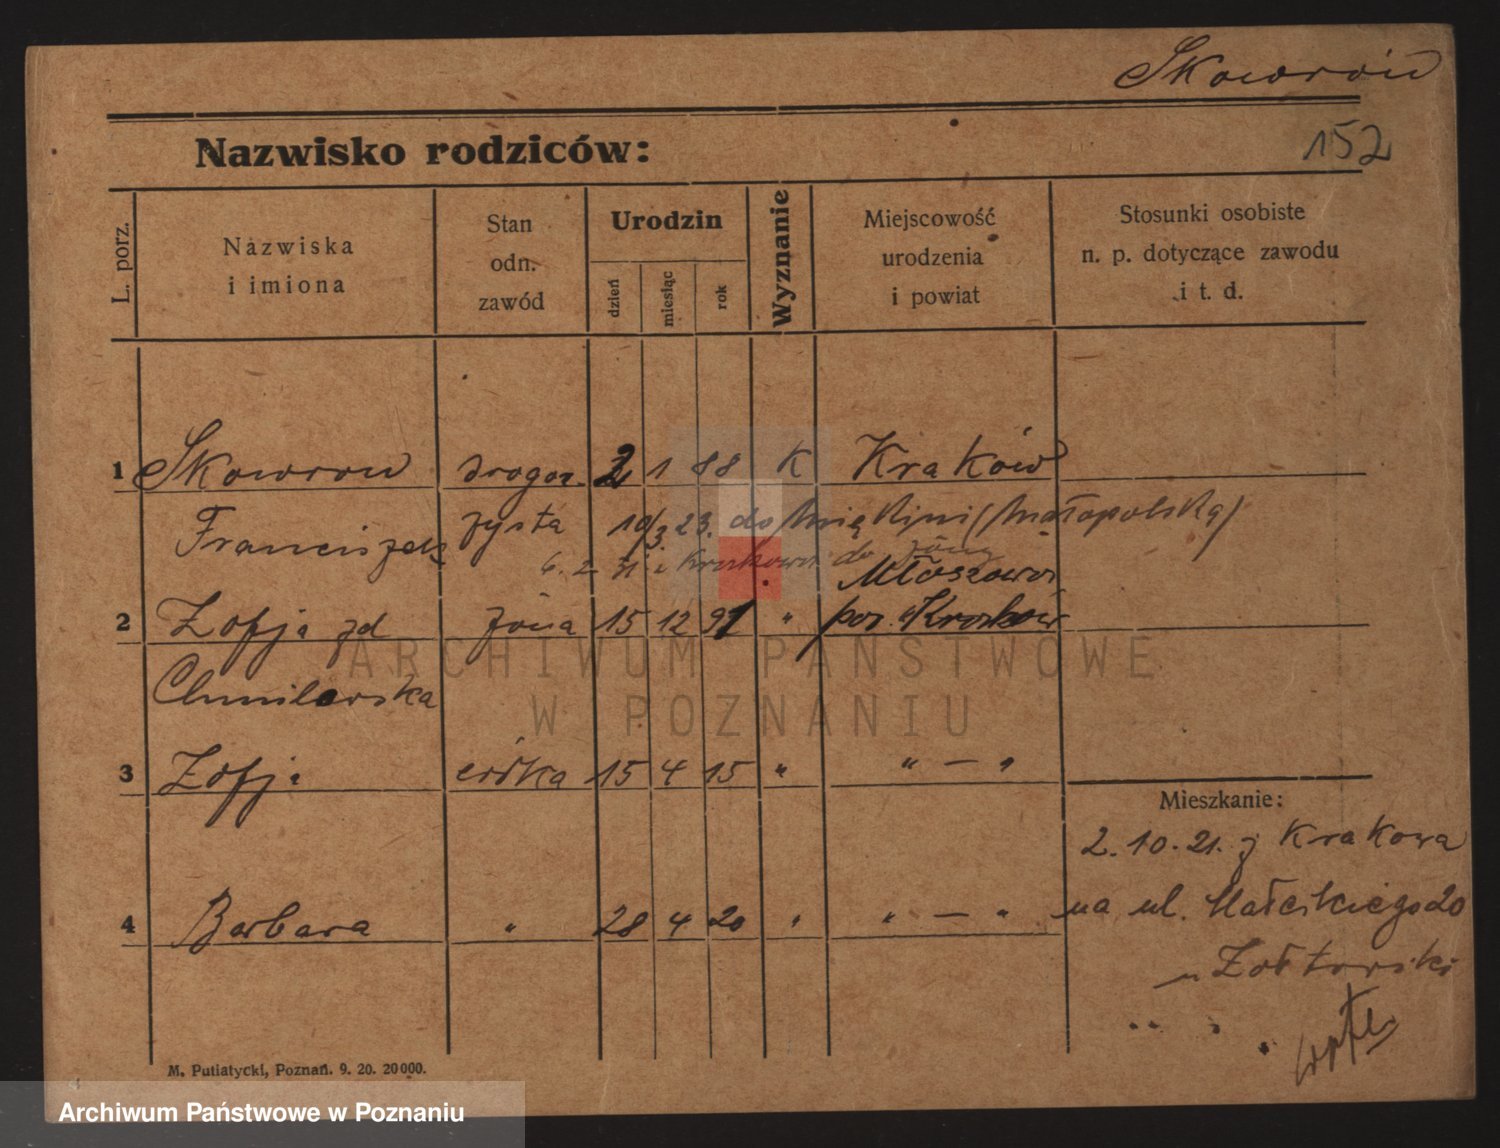 Skowron
Nazwisko rodziców:
152
L. porz.
Nazwiska
i imiona
Stan
odn.
zawód
Urodzin
dzień
miesiąc
rok
Wyznanie
Miejscowość
urodzenia
i powiat
Stosunki osobiste
n. p. dotyczące zawodu
i t. d.
1 Skowron drogo- 2 1 88 K Kraków
Franciszek zysta 10/3. 23. do (Małopolska)
6. 2 z Krakowa do żony
Młoszowa
2 Zofja zd żona 15 12 91 " pow. Kraków
Chmilewska
3 Zofja córka 15 4 15 " " — "
Mieszkanie:
2. 10. 21. z Krakowa
4 Barbara " 28 4 20 " " — "
na ul. Małeckiego 20
u Żółtowski
M. Putiatycki, Poznań. 9. 20. 20000.
ARCHIWUM PAŃSTWOWE
W POZNANIU
Archiwum Państwowe w Poznaniu